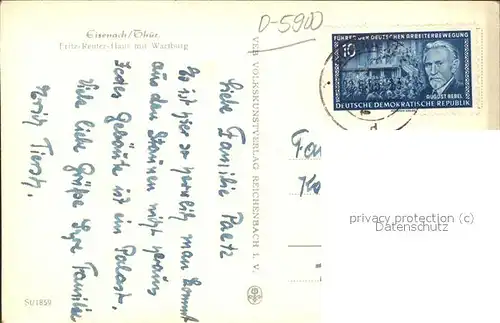 D-5900
Eisenach/Thür.
Fritz-Reuter-Haus mit Wartburg
Liebe Familie Paetz
Es ist hier so herrlich man kommt
aus den Staunen nicht heraus
Jedes Gebäude ist ein Palast.
Viele liebe Grüße Ihre Familie
Herzlich Tiersch.
VEB VOLKSKUNSTVERLAG REICHENBACH I. V.
St/1859
FÜHRER DER DEUTSCHEN ARBEITERBEWEGUNG
10
AUGUST BEBEL
DEUTSCHE DEMOKRATISCHE REPUBLIK
Fa
privacy protection (c)
Datenschutz